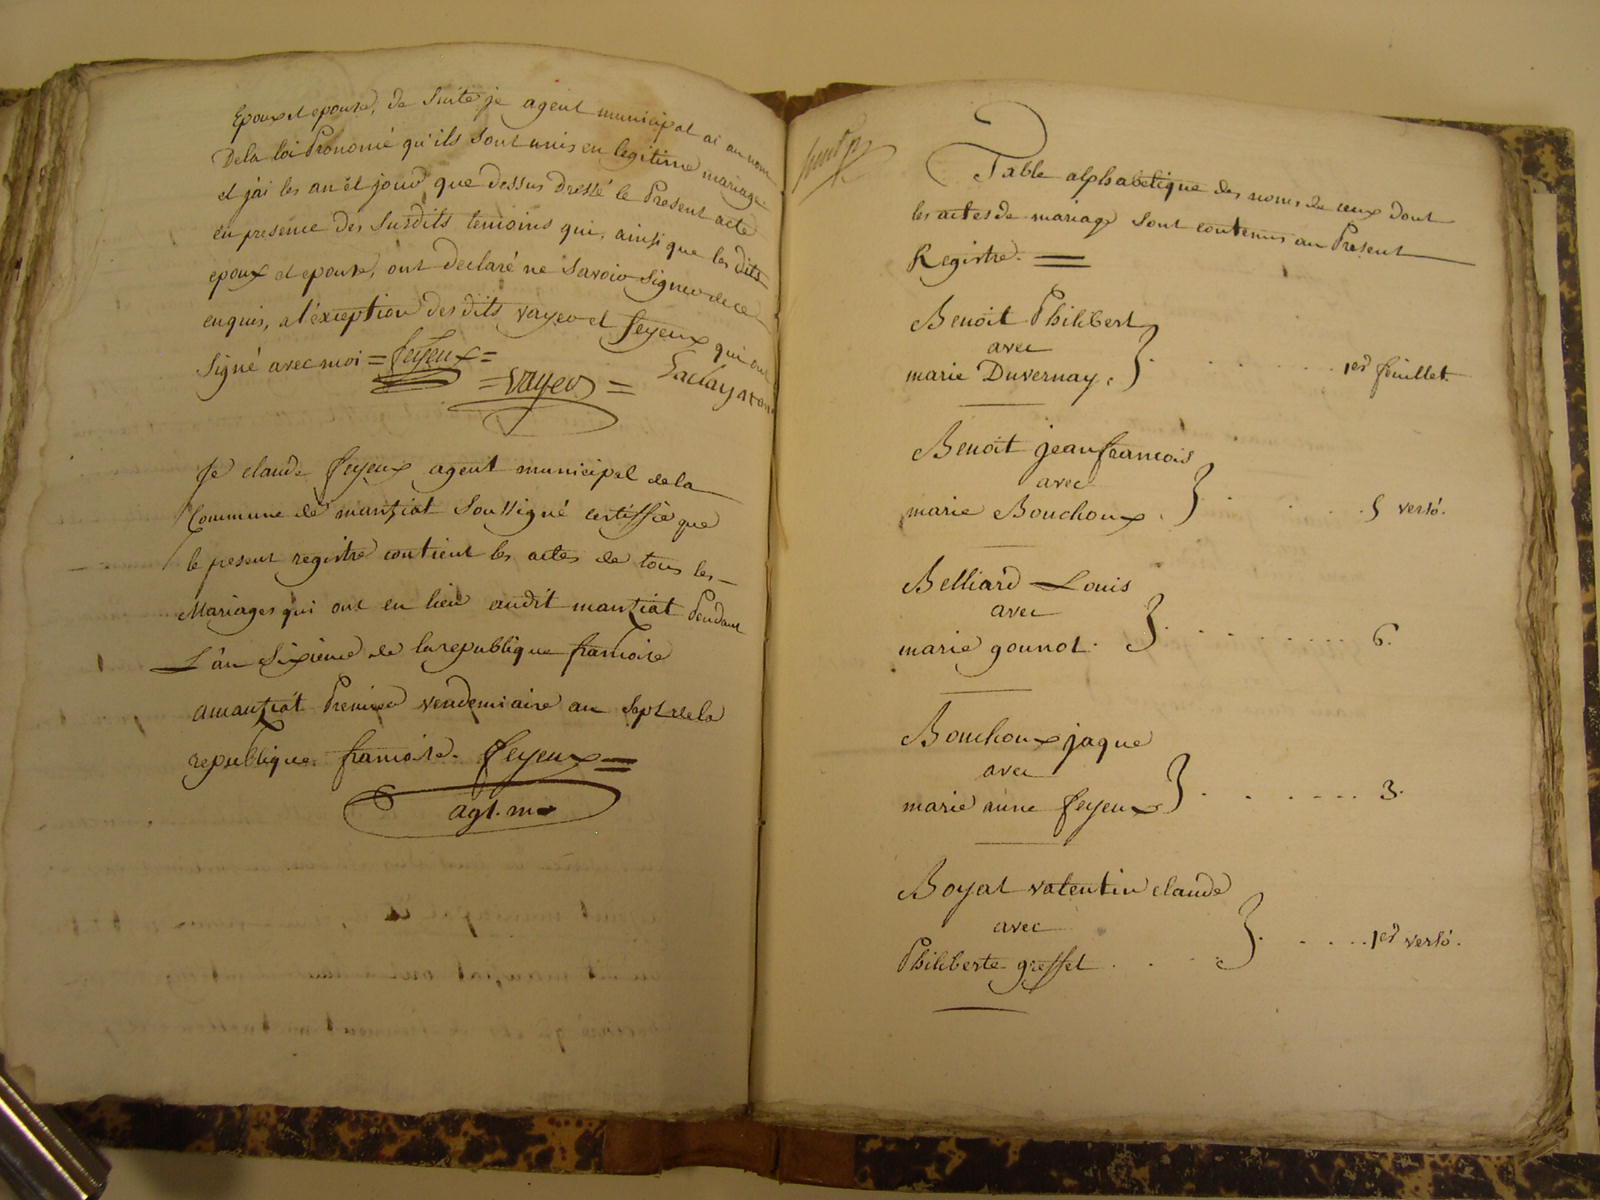 Epoux et epouse, de suite je agent municipal ai au nom
De la loi Prononcé qu'ils sont unis en legitime mariage
et j'ai les an et jour que dessus Dressé le Present acte
en presence des susdits temoins qui, ainsi que les dits
epoux et epouse, ont declaré ne savoir signer de ce
enquis, a l'exception des dits vayer et feyeux qui ont
signé avec moi = feyeux =
= vayer =
Je claude feyeux agent municipal de la
Commune de mantziat soussigné certiffie que
le present registre contient les actes de tous les
Mariages qui ont eu lieu audit mantziat Pendant
L'an sixieme de la republique francoise
a mantziat Premier vendemiaire an sept de la
republique francoise. feyeux =
agt. m
Table alphabetique des noms de ceux Dont
les actes de mariage sont contenus au Present
Registre. =
Benoit Philibert
avec
marie Duvernay. } . . . . . . 1er feuillet.
Benoit jean francois
avec
marie Bouchoux. } . . . . 5 verso.
Belliard Louis
avec
marie gounot. } . . . . . . . . 6.
Bouchoux jaque
avec
marie anne feyeux } . . . . . . . 3.
Boyat valentin claude
avec
Philiberte greffet . . . } . . . . . 1er verso.